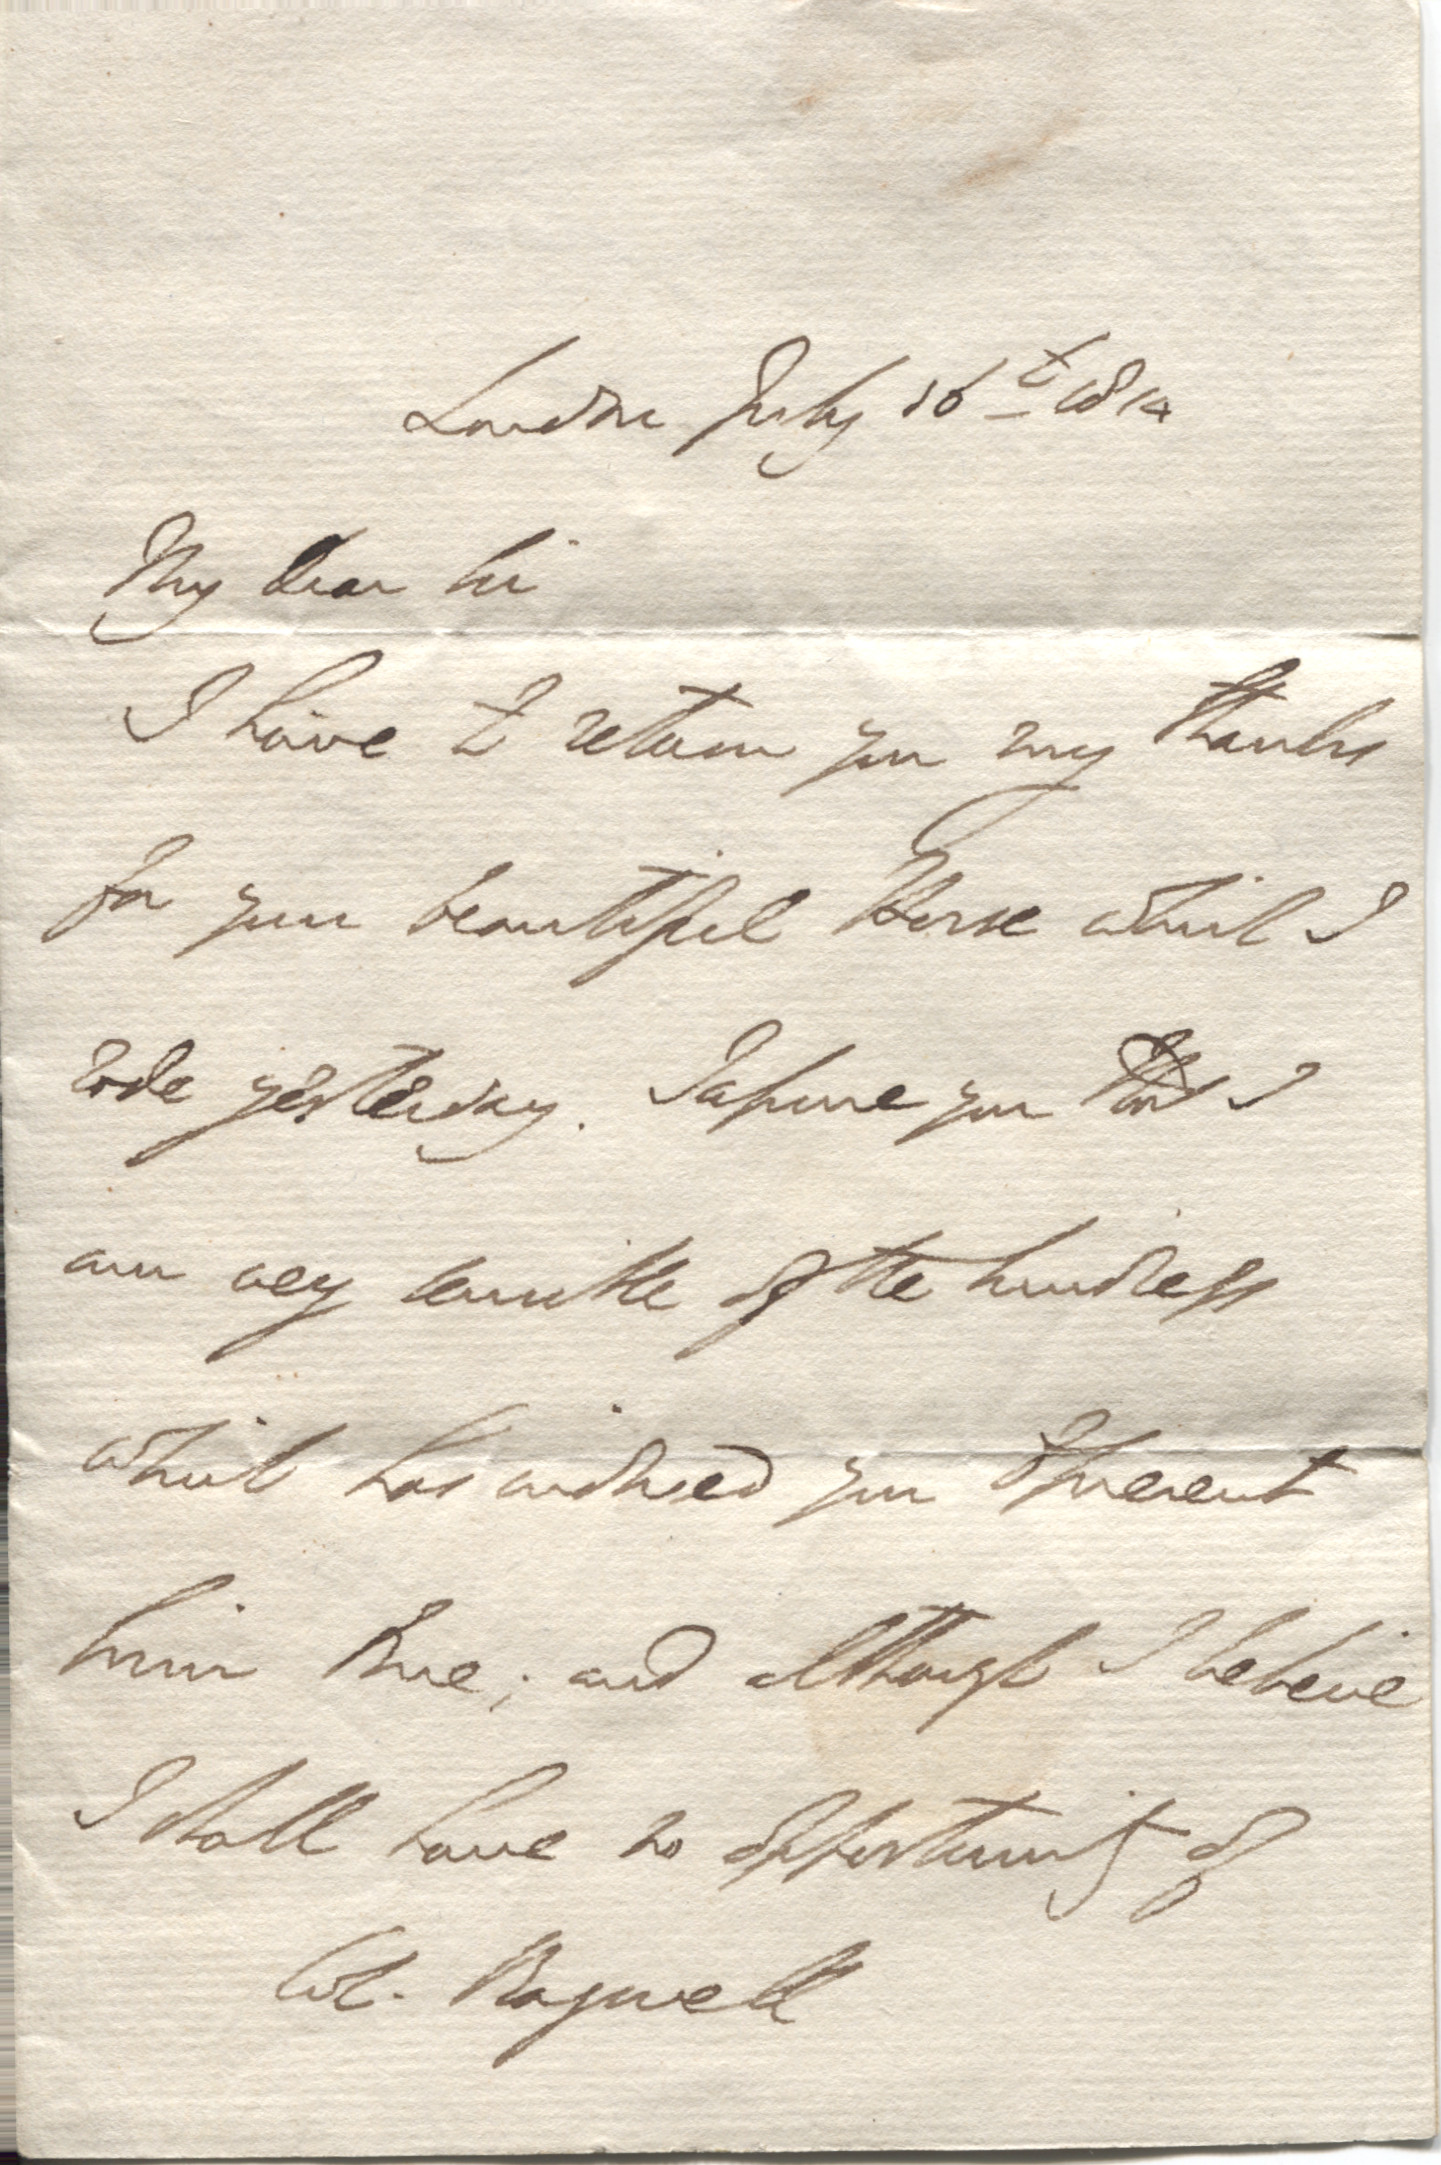 London July 16th 1814
My dear Sir
I have to return you my thanks
for your beautiful Horse which I
rode yesterday. I assure you that I
am very sensible of the kindness
which has induced you to present
him to me; and although I believe
I shall have no opportunity of
Col. Bagwell